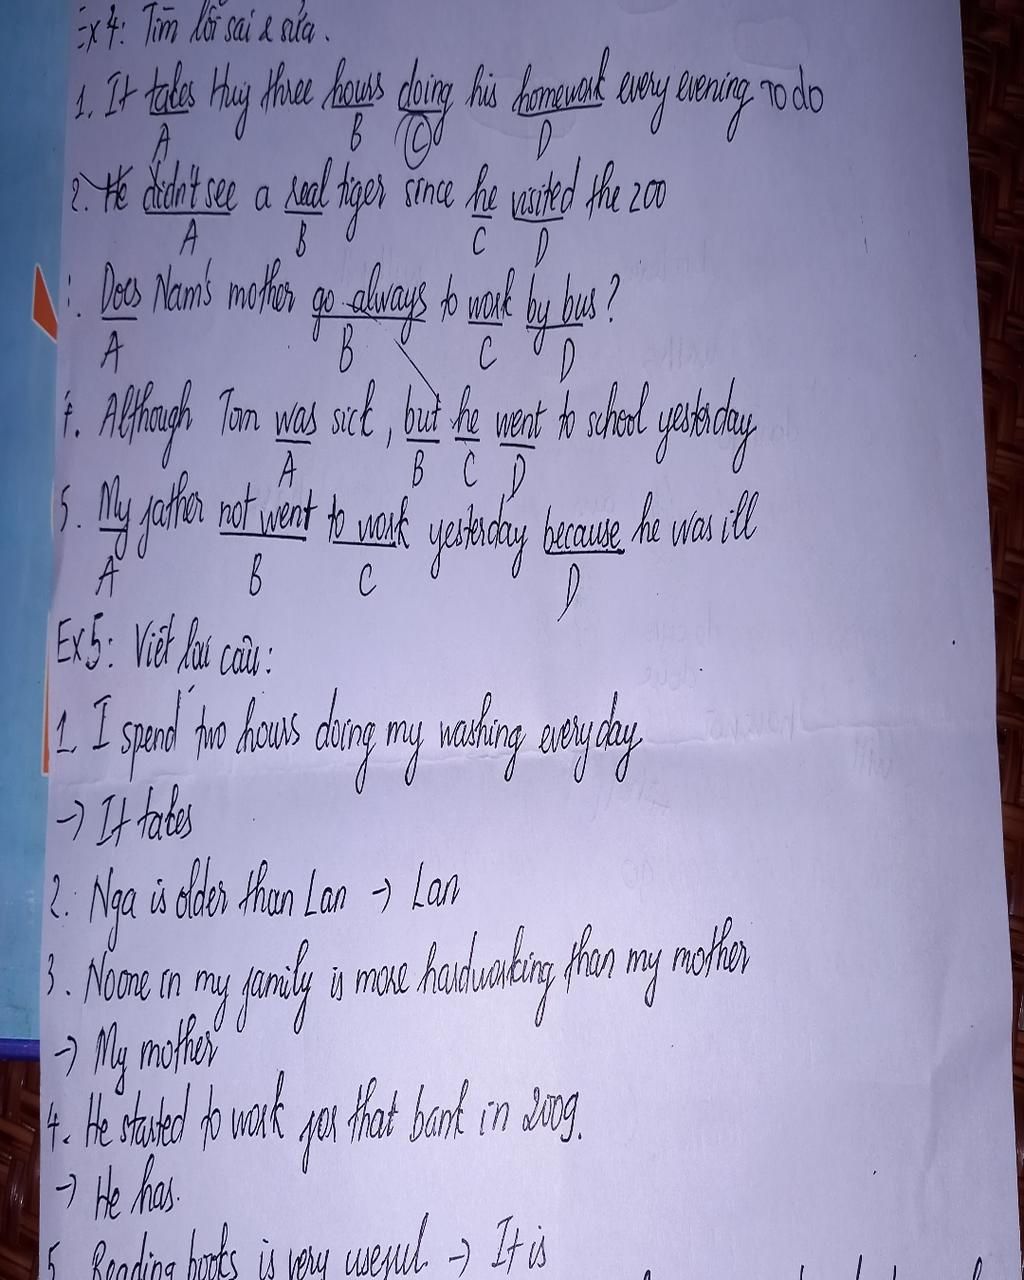 Ex 4: Tìm lỗi sai & sửa.
1. It takes Huy three hours doing his homework every evening TO do
A B C D
2. He didn't see a real tiger since he visited the zoo
A B C D
: Does Nam's mother go always to work by bus?
A B C D
4. Although Tom was sick, but he went to school yesterday
A B C D
5. My father not went to work yesterday because he was ill
A B C D
Ex 5: Viết lại câu:
1. I spend two hours doing my washing everyday
→ It takes
2. Nga is older than Lan → Lan
3. Noone in my family is more hardworking than my mother
→ My mother
4. He started to work for that bank in 2009.
→ He has.
5 Reading books is very useful. → It is